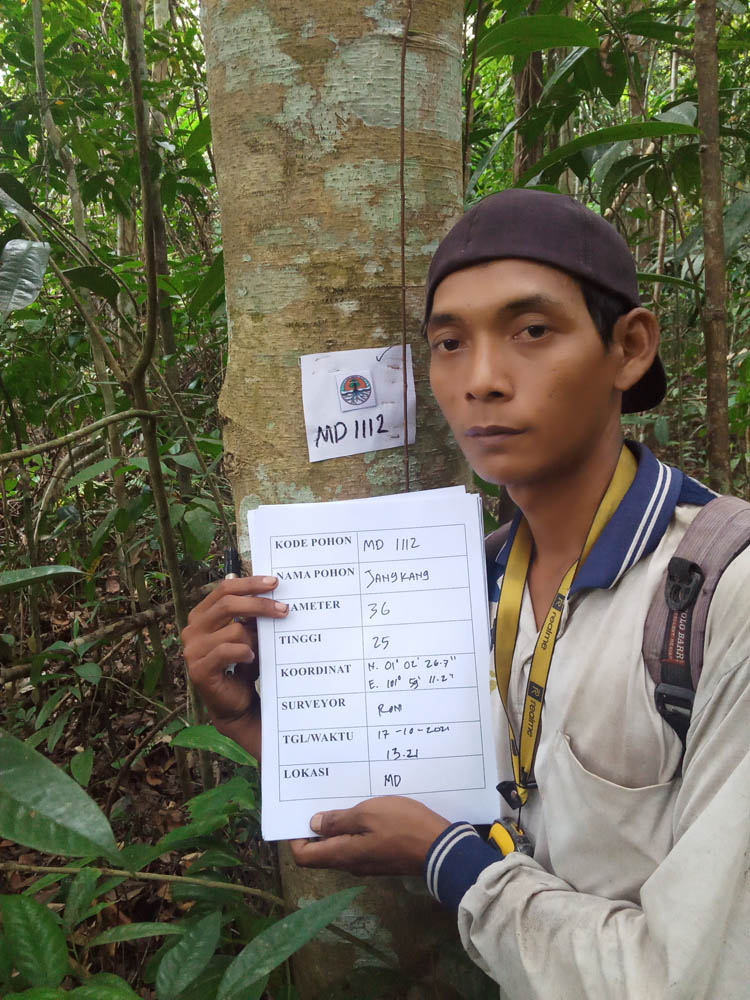 MD 1112
KODE POHON MD 1112
NAMA POHON JANGKANG
DIAMETER 36
TINGGI 25
KOORDINAT N. 01° 02' 26.7"
E. 101° 59' 11.2"
SURVEYOR RONI
TGL/WAKTU 17-10-2021
13.21
LOKASI MD
realme
realme
POLO BARR